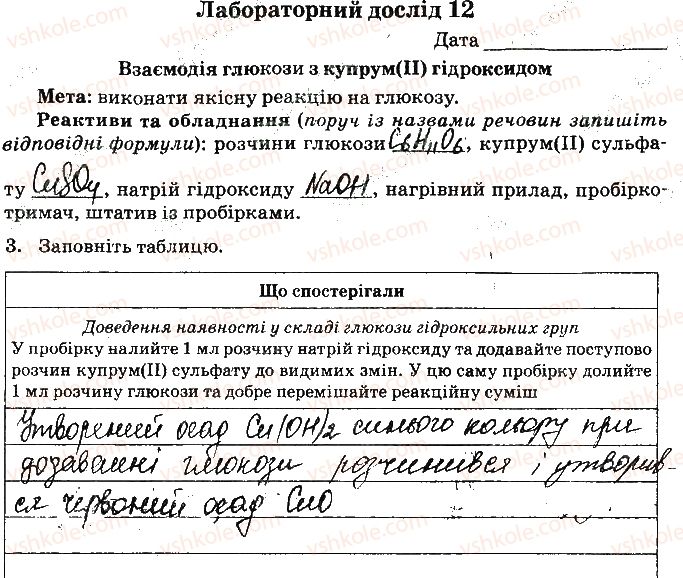 Лабораторний дослід 12
Дата
Взаємодія глюкози з купрум(II) гідроксидом
Мета: виконати якісну реакцію на глюкозу.
Реактиви та обладнання (поруч із назвами речовин запишіть
відповідні формули): розчини глюкози C6H11O6, купрум(II) сульфа-
ту CuSO4, натрій гідроксиду NaOH, нагрівний прилад, пробірко-
тримач, штатив із пробірками.
3. Заповніть таблицю.
Що спостерігали
Доведення наявності у складі глюкози гідроксильних груп
У пробірку налийте 1 мл розчину натрій гідроксиду та додавайте поступово
розчин купрум(II) сульфату до видимих змін. У цю саму пробірку долийте
1 мл розчину глюкози та добре перемішайте реакційну суміш
Утворений осад Cu(OH)2 синього кольору при
дозаванні глюкози розчинився і утворив-
ся червоний осад CuO
vshkole.com